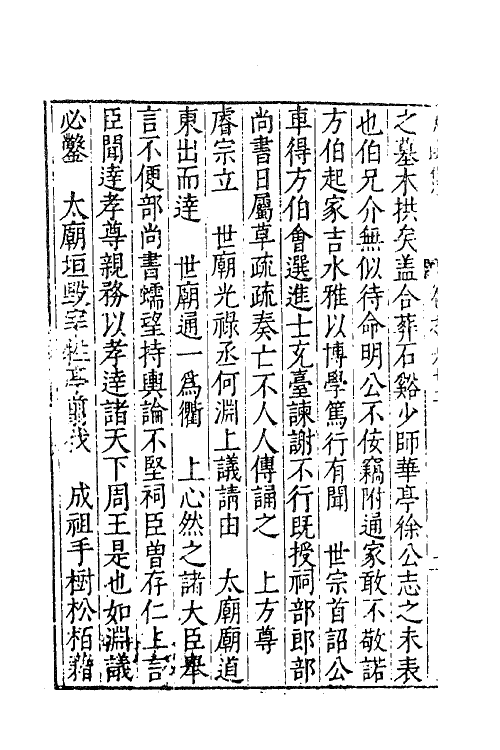 之墓木拱矣盖合葬石谿少師華亭徐公志之未表
也伯兄介無似待命明公不佞竊附通家敢不敬諾
方伯起家吉水雅以博學篤行有聞　世宗首詔公
車得方伯會選進士充臺諫謝不行既授祠部郎部
尚書日屬草疏疏奏亡不人人傳誦之　上方尊
睿宗立　世廟光祿丞何淵上議請由　太廟廟道
東出而達　世廟通一爲衢　上心然之諸大臣舉
言不便部尚書蠕望持輿論不堅祠臣曾存仁上言
臣聞達孝尊親務以孝達諸天下周王是也如淵議
必鑿　太廟垣毀宰牲亭　成祖手樹松栢